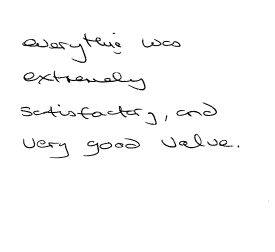 everything was
extremely
satisfactory, and
very good value.